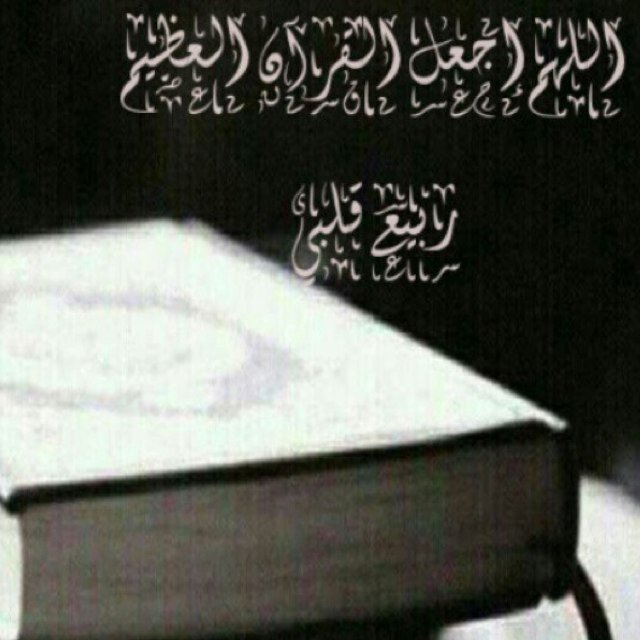 اللهم اجعل القرآن العظيم
ربيع قلبي